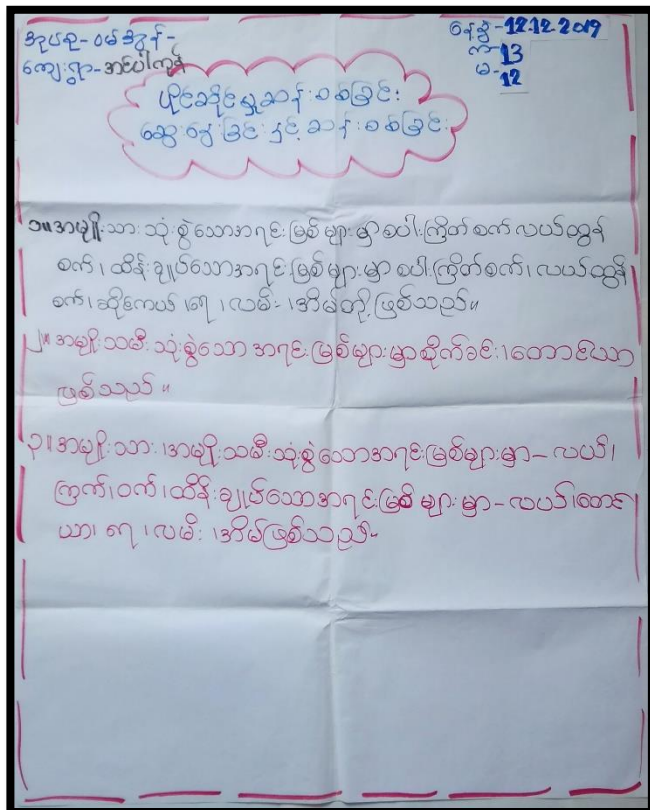 အုပစု-ဝမ်အွန်-
ကျေးရွာ-အင်ပါကုန်
နေ့စွဲ-12.12.2019
ကျ-13
မ-12
ပိုင်ဆိုင်မှုဆန်းစစ်ခြင်း
ဆွေးနွေးခြင်းနှင့်ဆန်းစစ်ခြင်း
၁။အမျိုးသားသုံးစွဲသောအရင်းမြစ်များမှာစပါးကြိတ်စက်လယ်ထွန်
စက်၊ထိန်းချုပ်သောအရင်းမြစ်များမှာစပါးကြိတ်စက်၊လယ်ထွန်
စက်၊ဆိုင်ကယ်၊ရေ၊လမ်း၊အိမ်တို့ဖြစ်သည်။
၂။အမျိုးသမီးသုံးစွဲသောအရင်းမြစ်များမှာစိုက်ခင်း၊တောင်ယာ
ဖြစ်သည်။
၃။အမျိုးသား၊အမျိုးသမီးသုံးစွဲသောအရင်းမြစ်များမှာ-လယ်၊
ကြက်၊ဝက်၊ထိန်းချုပ်သောအရင်းမြစ်များမှာ-လယ်၊တောင်
ယာ၊ရေ၊လမ်း၊အိမ်ဖြစ်သည်။